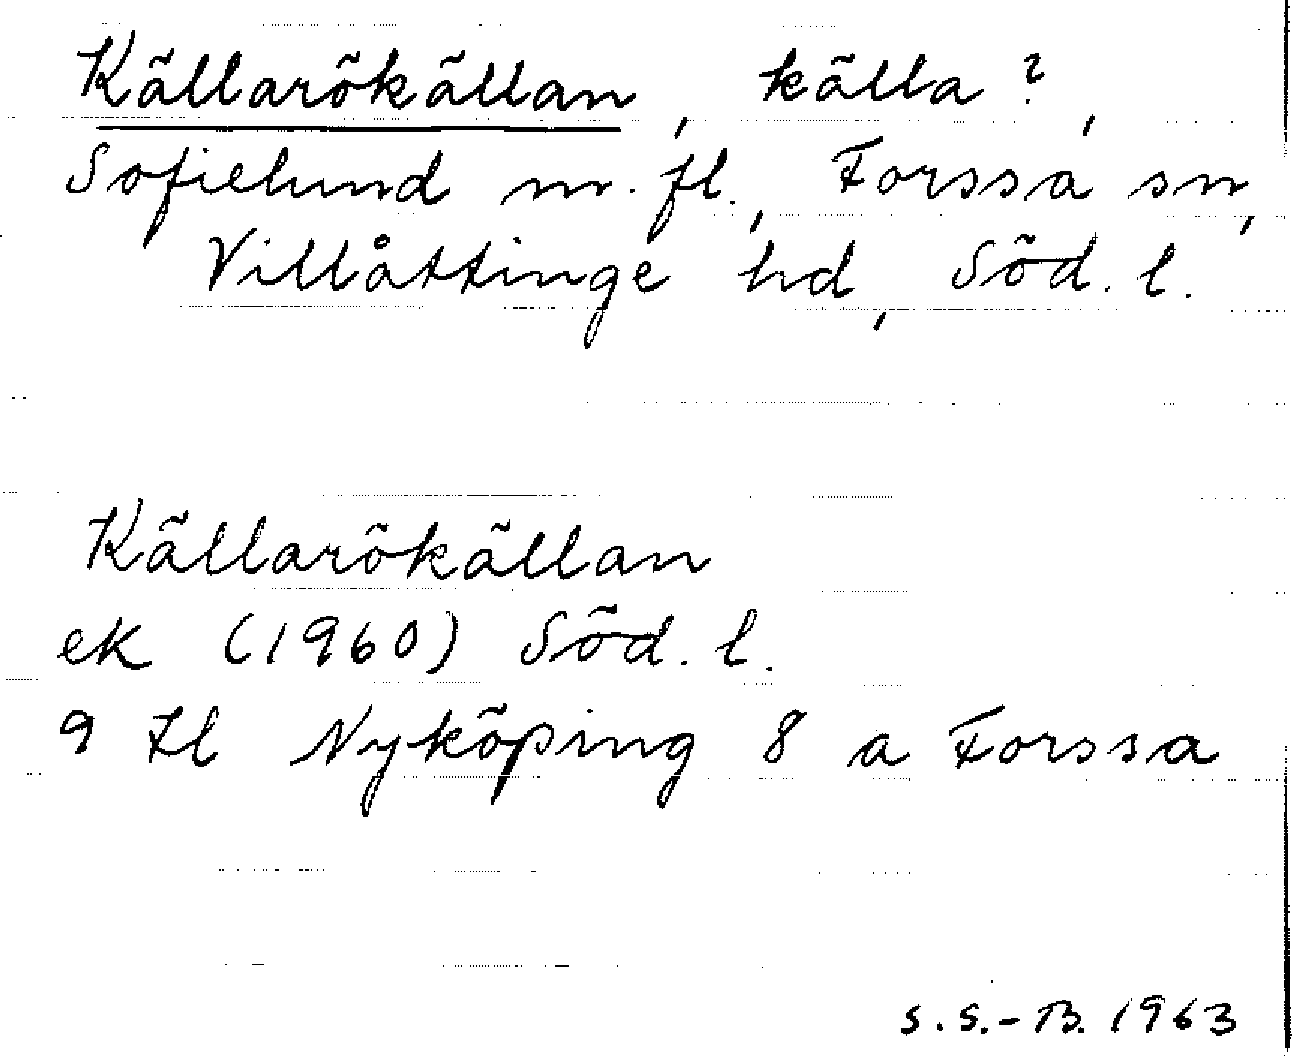 Källarökällan, källa?,
Sofielund m. fl., Forssa sn,
Villåttinge hd, Söd. l.
Källarökällan
ek (1960) Söd. l.
9 Hl Nyköping 8 a Forssa
S.S.-B. 1963